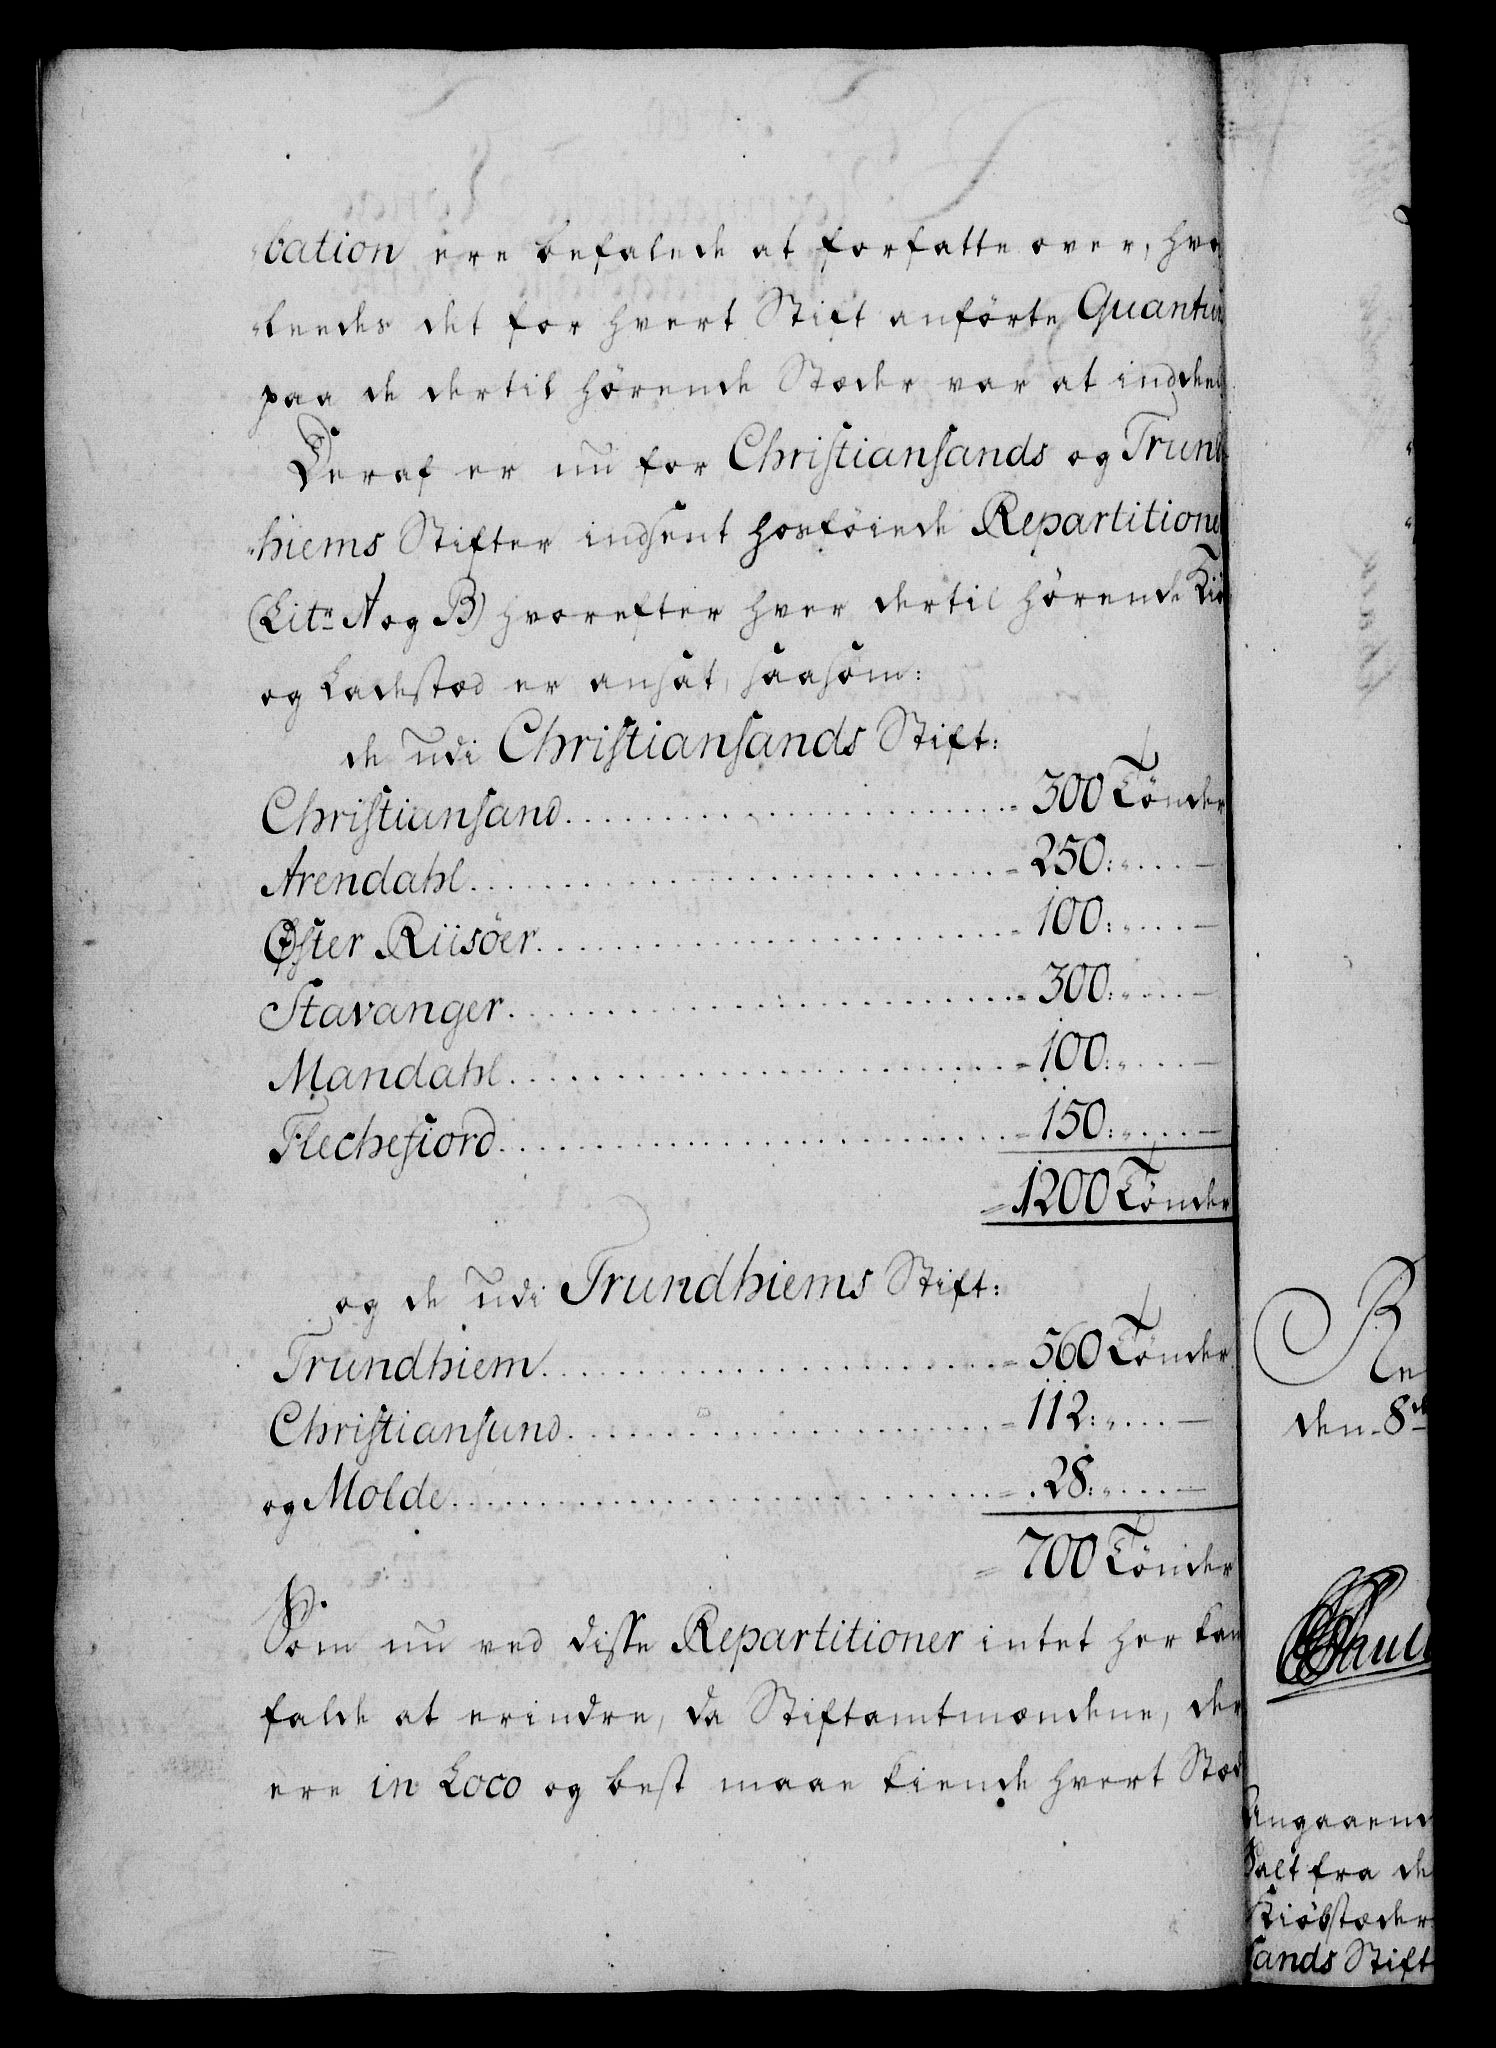 -bation ere befalede at forfatte over, hvo
-ledes det for hvert Stift anførte Quantu
paa de dertil hørende Stæder var at inddeel
Deraf er nu for Christiansands og Trund
-hiems Stifter indsent hosføiede Repartitione
(Litr A og B) hvorefter hver dertil hørende Kiø
og Ladestæd er ansat, saasom:
de udi Christiansands Stift:
Christiansand. . . . . . . . . 300 Tønder
Arendahl. . . . . . . . . 250: " . . . . —
Øster Riisøer. . . . . . . . . 100: " . . . . —
Stavanger. . . . . . . . . 300: " . . . . —
Mandahl. . . . . . . . . 100: " . . . . —
Flechefiord. . . . . . . . . 150: " . . . . —
1200 Tønder
og de udi Trundhiems Stift:
Trundhiem. . . . . . . . . 560 Tønder
Christiansund. . . . . . . . . 112: " . . . . —
og Molde. . . . . . . . . 28: " . . . . —
700 Tønder
Som nu ved disse Repartitioner intet her kan
falde at erindre, da Stiftamtmændene, der
ere in Loco og best maae kiende hvert Stæd
Re
den 8de
Angaaend
Salt fra de
Kiøbstæder
sands Stift